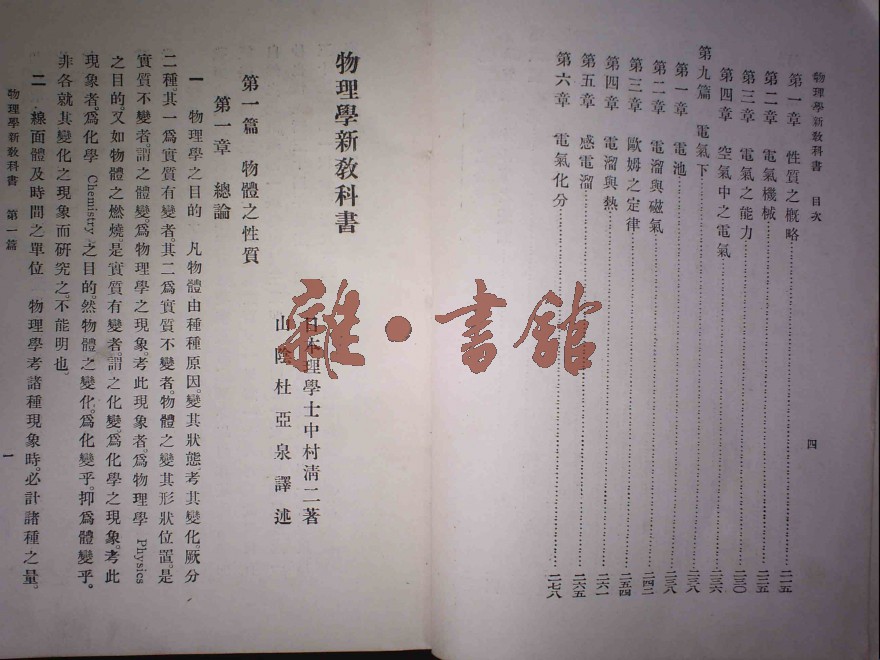 物理學新敎科書　目次
第一章　性質之概略……二一五
第二章　電氣機械……二二五
第三章　電氣之能力……二三〇
第四章　空氣中之電氣……二三六
第九篇　電氣下……二三八
第一章　電池……二三八
第二章　電溜與磁氣……二四二
第三章　歐姆之定律……二五四
第四章　電溜與熱……二六一
第五章　感電溜……二六五
第六章　電氣化分……二七八
四
物理學新敎科書
日本理學士中村淸二著
山陰杜亞泉譯述
第一篇　物體之性質
第一章　總論
一　物理學之目的　凡物體由種種原因。變其狀態考其變化。厥分
二種。其一爲實質有變者。其二爲實質不變者。物體之變其形狀位置。是
實質不變者。謂之體變。爲物理學之現象。考此現象者。爲物理學 Physics
之目的。又如物體之燃燒。是實質有變者。謂之化變。爲化學之現象。考此
現象者。爲化學 Chemistry 之目的。然物體之變化。爲化變乎。抑爲體變乎。
非各就其變化之現象而研究之。不能明也。
二　線面體及時間之單位　物理學考諸種現象時。必計諸種之量。
物理學新敎科書　第一篇
一
雜·書館